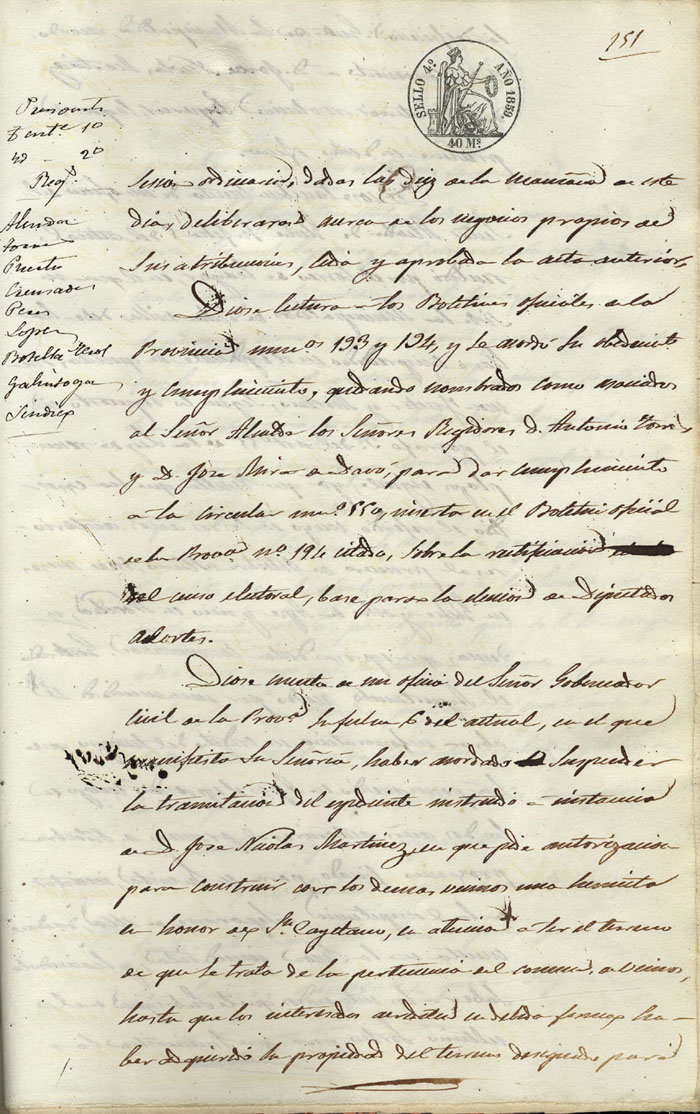 151
SELLO 4º AÑO 1859.
40 Ms.
Presidente
Tente 1º
Yd - 2º
Regs.
Alendo
Torres
Puerto
Peres
Lopez
Botella
Galinsoga
Sindico
Sesión ordinaria, dadas las diez de la mañana de este
dia, deliberaron acerca de los negocios propios de
sus atribuciones, leida y aprobada la acta anterior,
Diose lectura a los Boletines oficiales de la
Provincia numeos 193 y 194, y se acordó su obedimto
y cumplimiento, quedando nombrados como asociados
al Señor Alcalde los Señores Regidores D. Antonio Torres
y D. Jose Mira de Davó, para dar cumplimiento
a la circular numº 550, inserta en el Boletin oficial
de la Provª nº 194 citado, sobre la rectificacion
del censo electoral, base para la eleccion de Diputados
a Cortes.
Diose cuenta de un oficio del Señor Gobernador
Civil de la Provª su fecha 6 del actual, en el que
manifiesta Su Señoria, haber acordado suspender
la tramitacion del expediente instruido a instancia
de D. Jose Nicolas Martinez, en que pide autorizacion
para construir con los demas vecinos una hermita
en honor de Sn. Cayetano, en atencion a ser el terreno
de que se trata de la pertenencia del comun de vecinos,
hasta que los interesados acrediten en debida forma ha-
ber adquirido la propiedad del terreno designado para